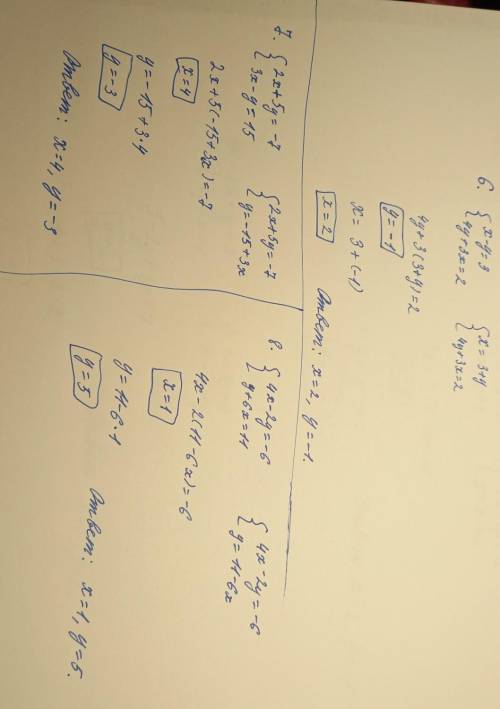 6. { x-y=3 { x=3+y
4y+3x=2 4y+3x=2
4y+3(3+y)=2
y=-1
x=3+(-1)
x=2
Ответ: x=2, y=-1.
7. { 2x+5y=-7 { 2x+5y=-7
3x-y=15 y=-15+3x
2x+5(-15+3x)=-7
x=4
y=-15+3·4
y=-3
Ответ: x=4, y=-3
8. { 4x-2y=-6 { 4x-2y=-6
y+6x=11 y=11-6x
4x-2(11-6x)=-6
x=1
y=11-6·1
y=5
Ответ: x=1, y=5.